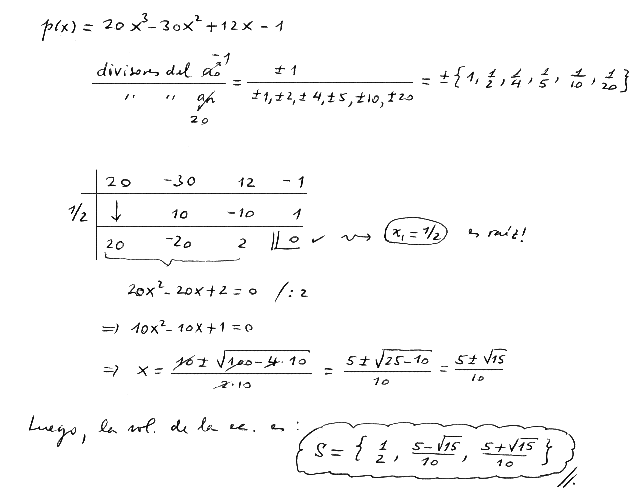 p(x) = 20x³ - 30x² + 12x - 1
divisores del a₀ -1 / " " aₙ 20 = ±1 / ±1, ±2, ±4, ±5, ±10, ±20 = ±{1, 1/2, 1/4, 1/5, 1/10, 1/20}
20 -30 12 -1
1/2 ↓ 10 -10 1
20 -20 2 ||0 ✓ ⇝ x₁ = 1/2 es raíz!
20x² - 20x + 2 = 0 /:2
⇒ 10x² - 10x + 1 = 0
⇒ x = (10 ± √(100 - 4·10)) / (2·10) = (5 ± √(25 - 10)) / 10 = (5 ± √15) / 10
Luego, la sol. de la ec. es: S = { 1/2, (5-√15)/10, (5+√15)/10 } //.